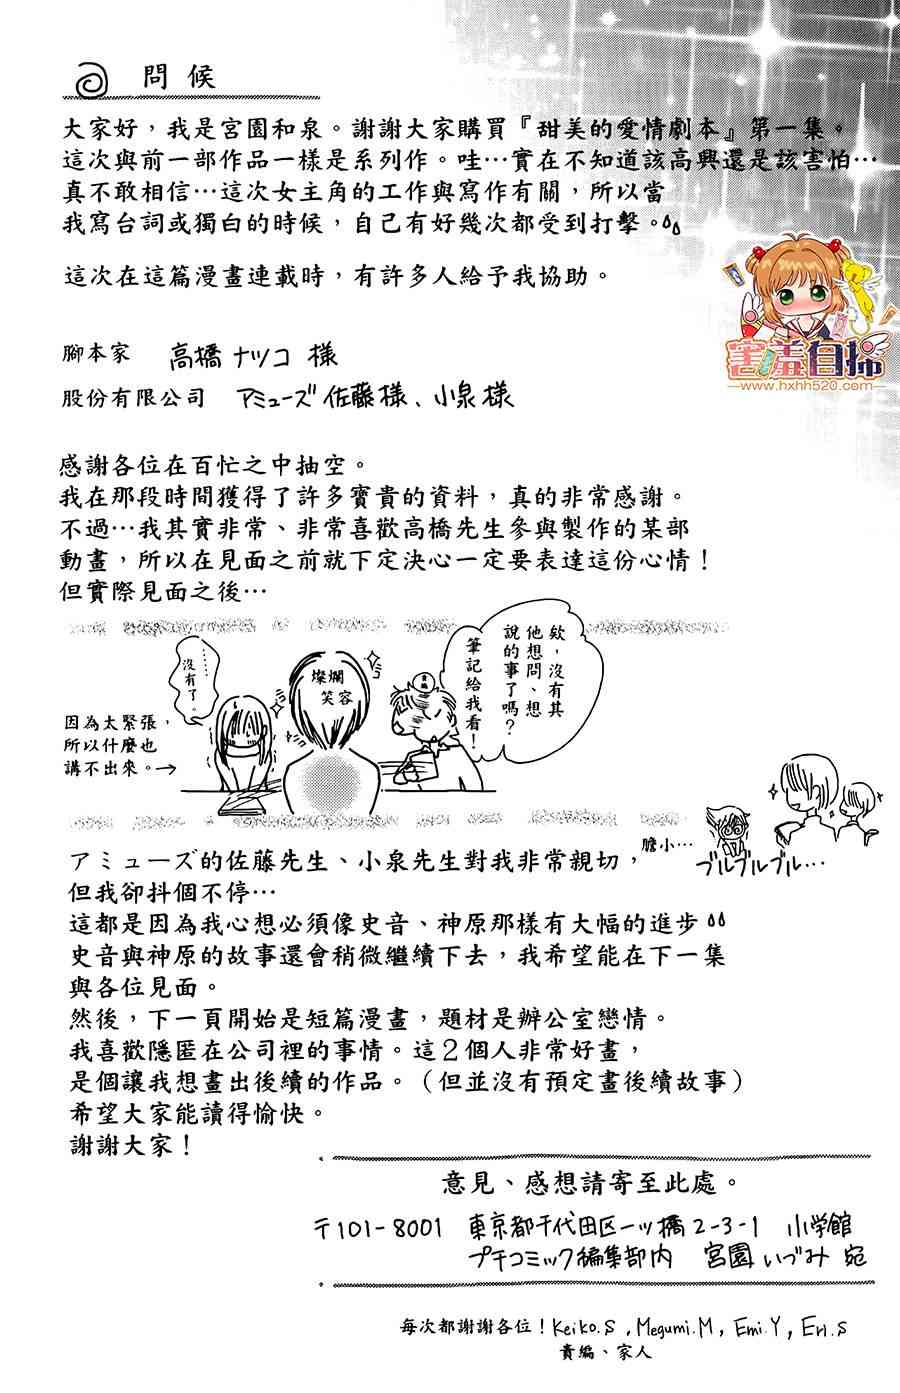 問候
大家好，我是宮園和泉。謝謝大家購買『甜美的愛情劇本』第一集。
這次與前一部作品一樣是系列作。哇…實在不知道該高興還是該害怕…
真不敢相信…這次女主角的工作與寫作有關，所以當
我寫台詞或獨白的時候，自己有好幾次都受到打擊。
這次在這篇漫畫連載時，有許多人給予我協助。
害羞自掃
www.hxhh520.com
腳本家 高橋ナツコ 様
股份有限公司 アミューズ 佐藤様、小泉様
感謝各位在百忙之中抽空。
我在那段時間獲得了許多寶貴的資料，真的非常感謝。
不過…我其實非常、非常喜歡高橋先生參與製作的某部
動畫，所以在見面之前就下定決心一定要表達這份心情！
但實際見面之後…
欸，沒有其
他想問、想
說的事了嗎？
筆記給我看！
責編
燦爛
笑容
……
沒有了。
因為太緊張，
所以什麼也
講不出來。→
膽小…
ブルブルブル…
アミューズ的佐藤先生、小泉先生對我非常親切，
但我卻抖個不停…
這都是因為我心想必須像史音、神原那樣有大幅的進步
史音與神原的故事還會稍微繼續下去，我希望能在下一集
與各位見面。
然後，下一頁開始是短篇漫畫，題材是辦公室戀情。
我喜歡隱匿在公司裡的事情。這２個人非常好畫，
是個讓我想畫出後續的作品。（但並沒有預定畫後續故事）
希望大家能讀得愉快。
謝謝大家！
意見、感想請寄至此處。
〒101-8001 東京都千代田区一ツ橋2-3-1 小学館
プチコミック編集部内 宮園いづみ 宛
每次都謝謝各位！Keiko.S , Megumi.M , Emi.Y , Eri.S
責編、家人